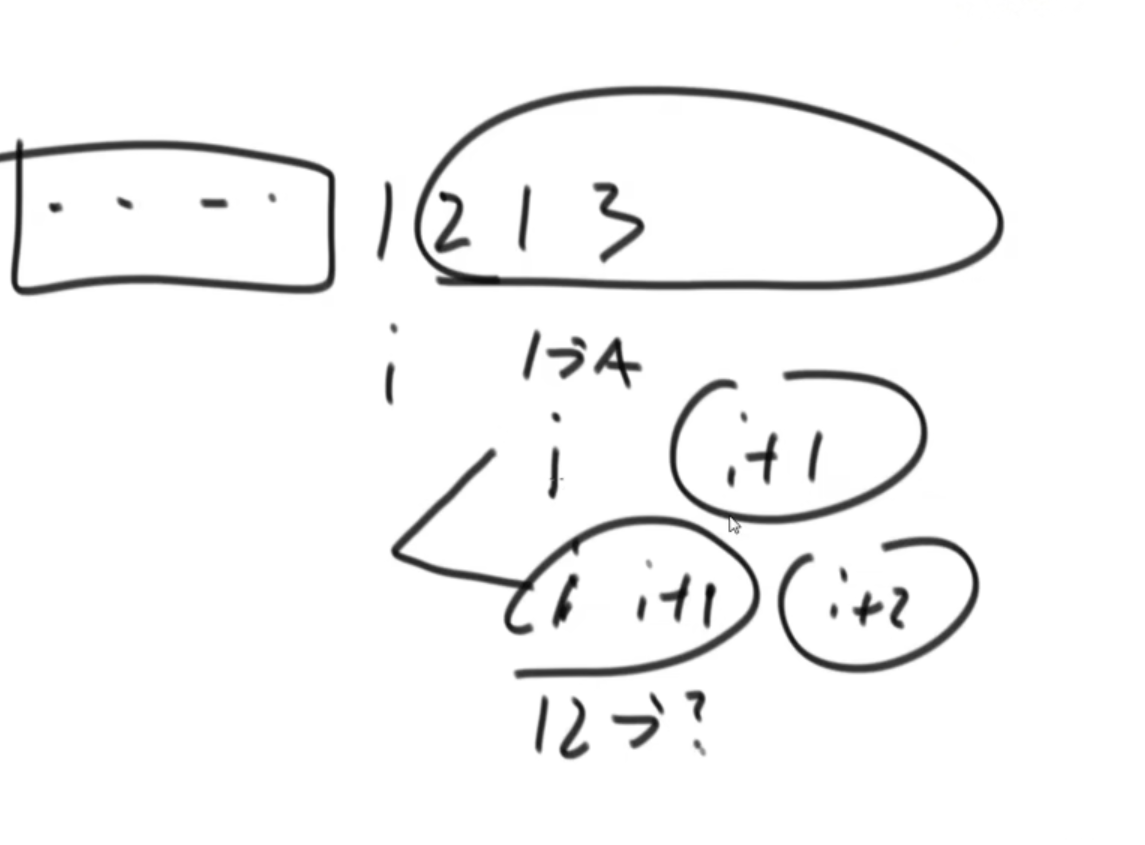 1 2 1 3
i 1→A
i i+1
i i+1 i+2
12→?